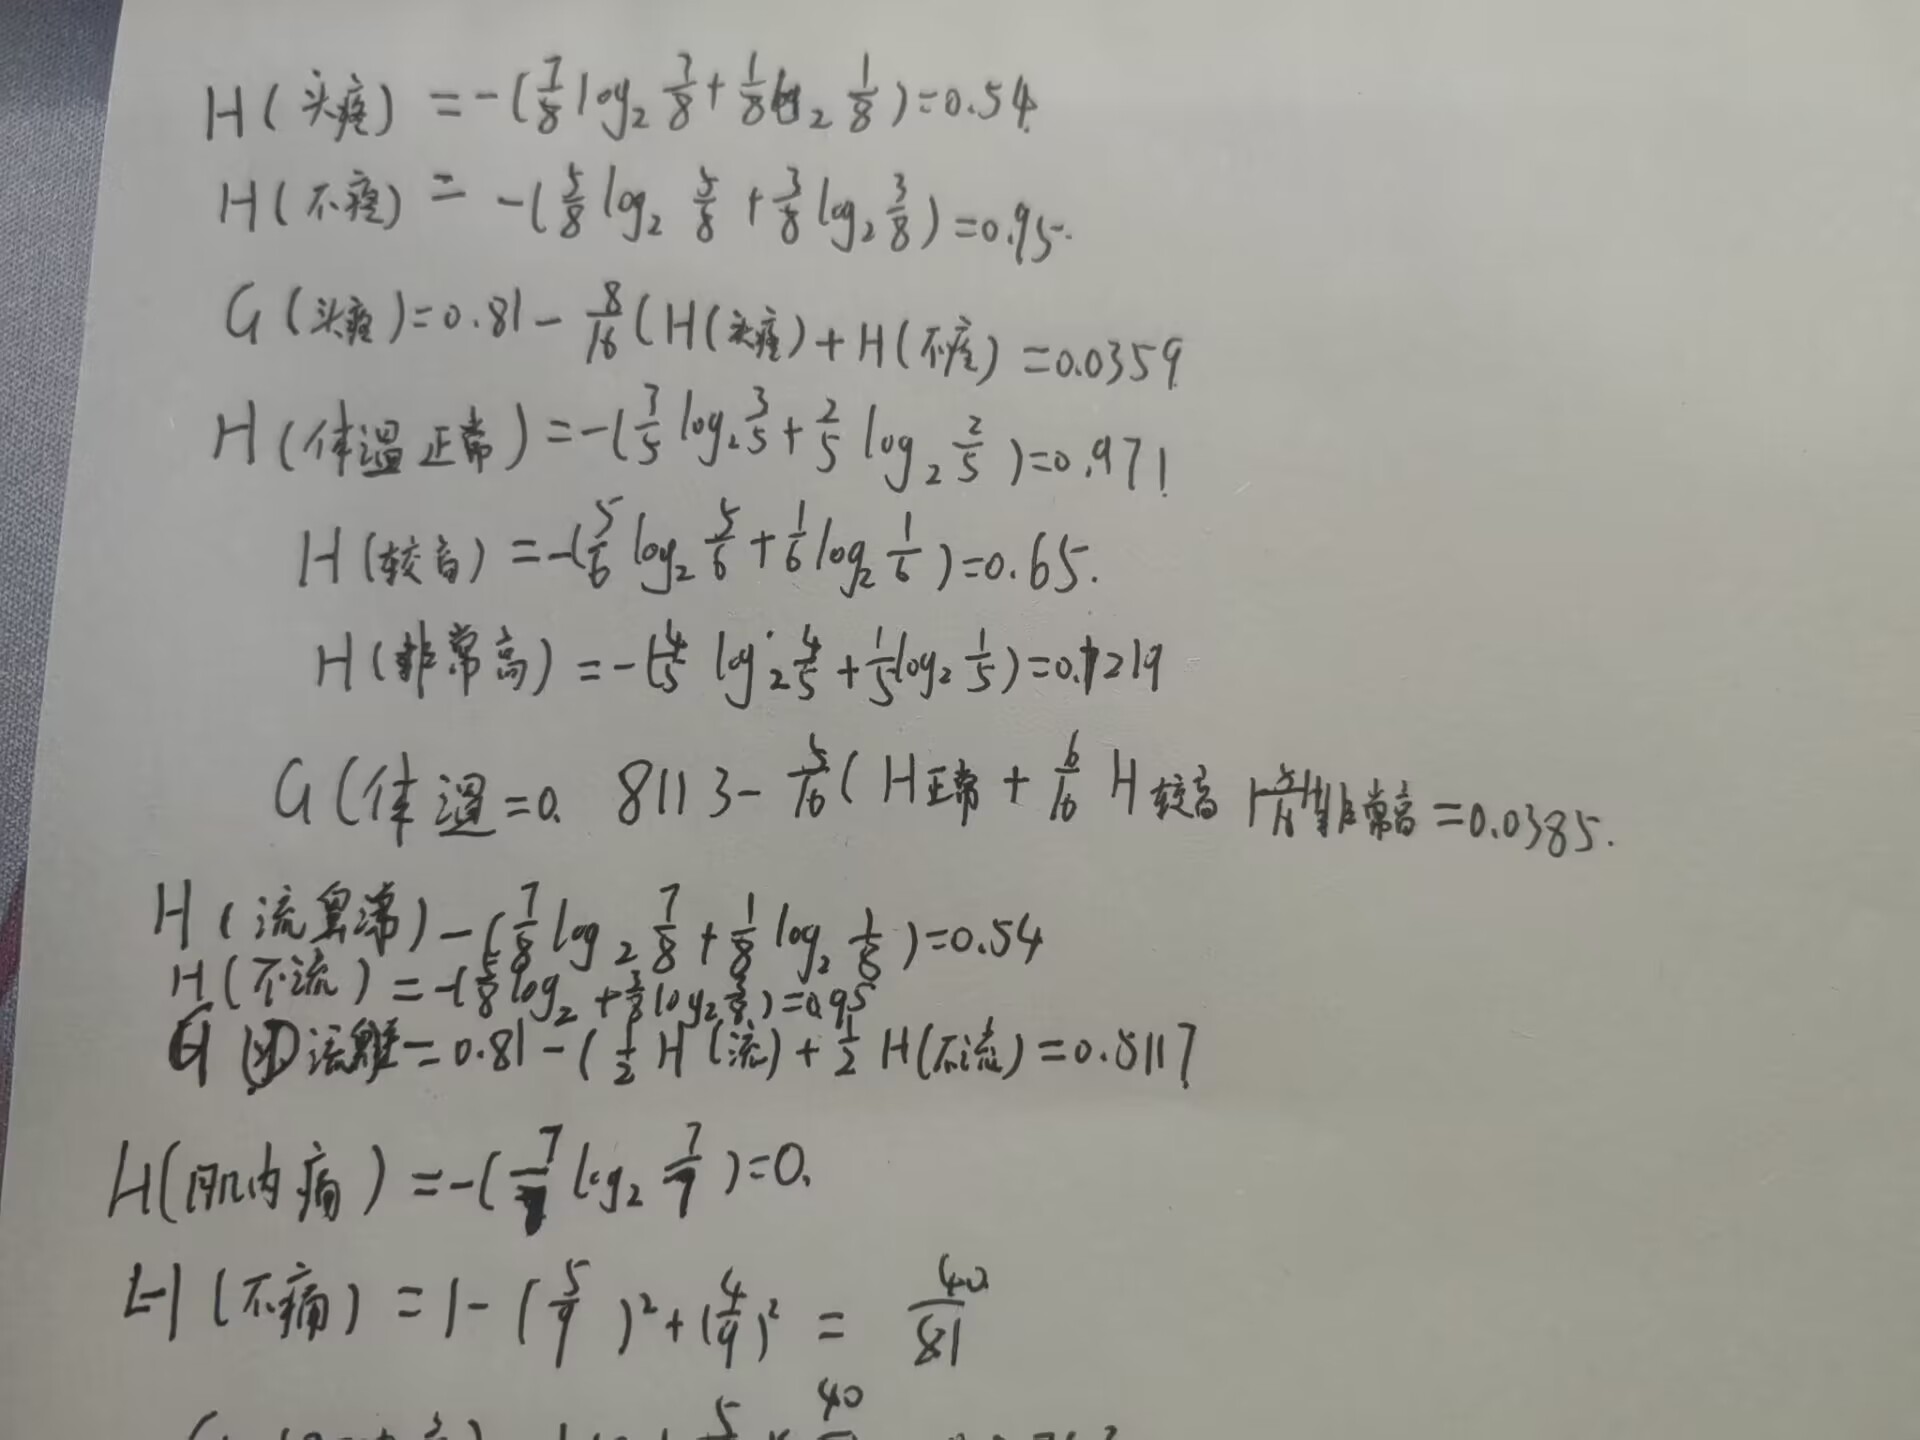 H(头疼) =-(7/8 log₂ 7/8 + 1/8 log₂ 1/8)=0.54
H(不疼) = -(5/8 log₂ 5/8 + 3/8 log₂ 3/8)=0.95.
G(头疼)=0.81- 8/16(H(头疼)+H(不疼)=0.0359
H(体温正常)=-(3/5 log₂ 3/5 + 2/5 log₂ 2/5)=0.971
H(较高) =-(5/6 log₂ 5/6 + 1/6 log₂ 1/6)=0.65.
H(非常高)=-(4/5 log₂ 4/5 + 1/5 log₂ 1/5)=0.7219
G(体温=0.8113- 5/16(H正常 + 6/16 H较高 + 5/16 H非常高=0.0385.
H(流鼻涕)-(7/8 log₂ 7/8 + 1/8 log₂ 1/8)=0.54
H(不流)=-(5/8 log₂ + 3/8 log₂ 3/8)=0.95
G =0.81-(1/2 H(流)+ 1/2 H(不流)=0.5117
H(肌肉痛)=-(7/7 log₂ 7/7)=0.
H(不痛) = 1-(5/9)²+(4/9)² = 40/81